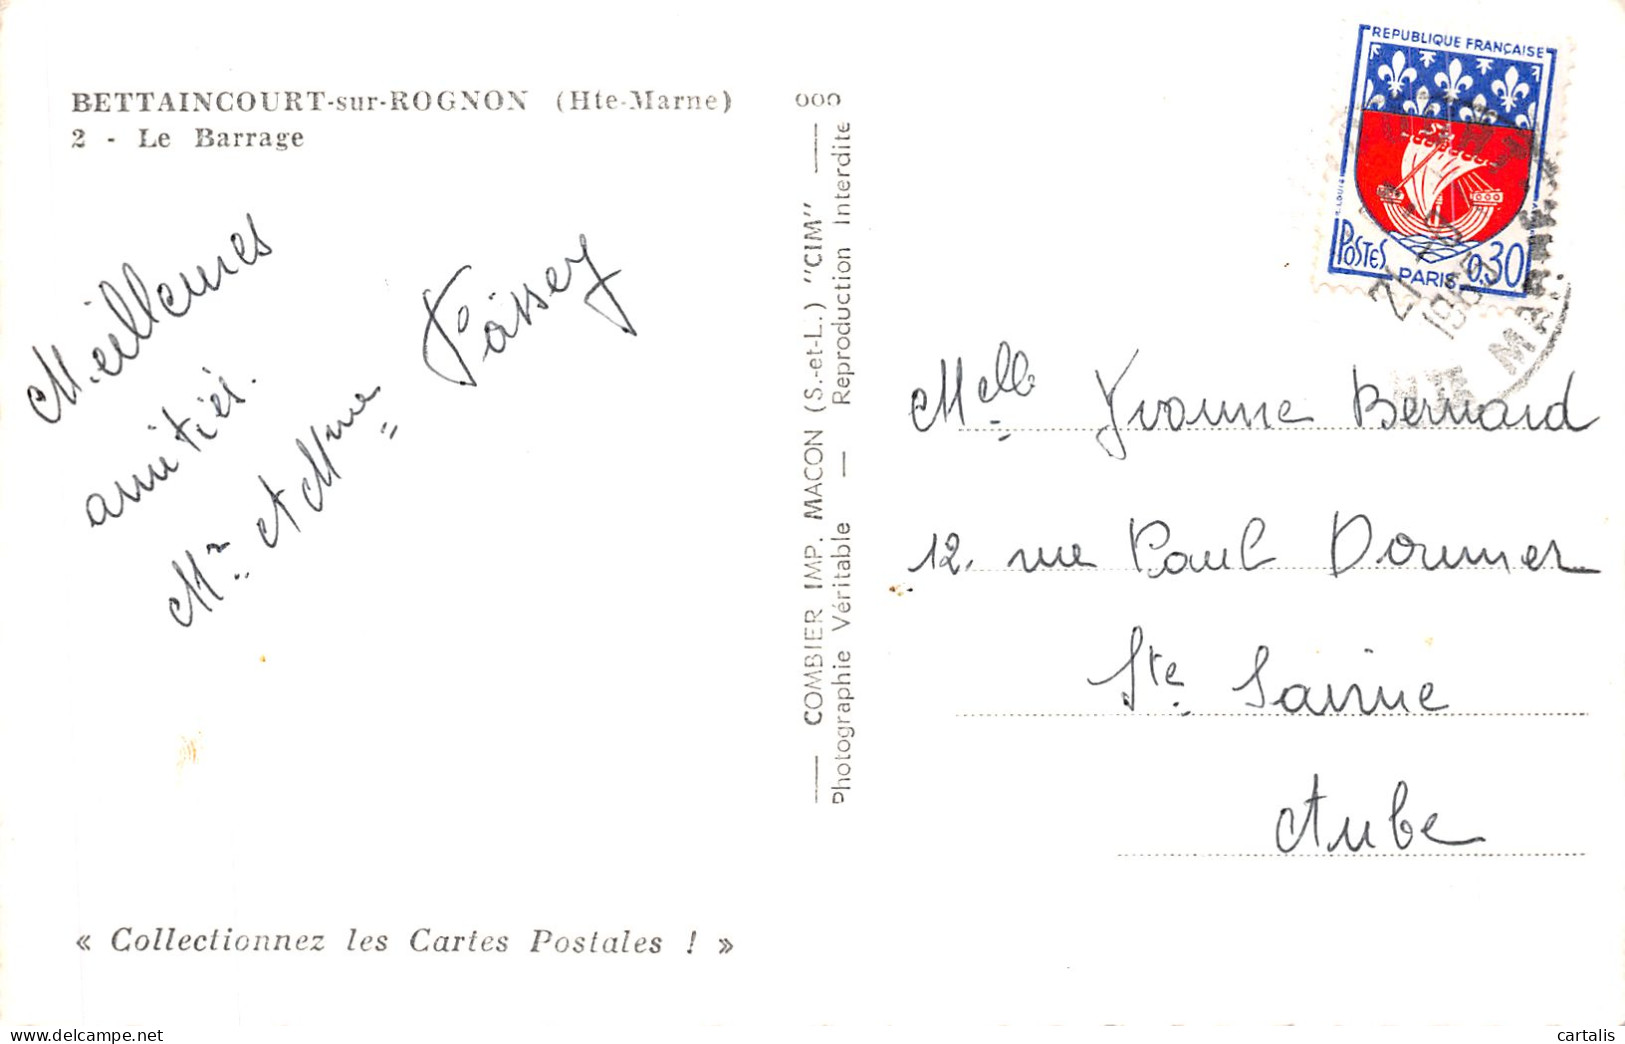 BETTAINCOURT-sur-ROGNON (Hte-Marne)
2 - Le Barrage
Meilleures
amitiés.
Mr et Mme
COMBIER IMP. MACON (S.-et-L.) "CIM"
Photographie Véritable — Reproduction Interdite
REPUBLIQUE FRANÇAISE
POSTES
PARIS
0,30
HTE MARNE
Melle Yvonne Bernard
12, rue Paul Doumer
Ste Savine
Aube
« Collectionnez les Cartes Postales ! »
cartalis